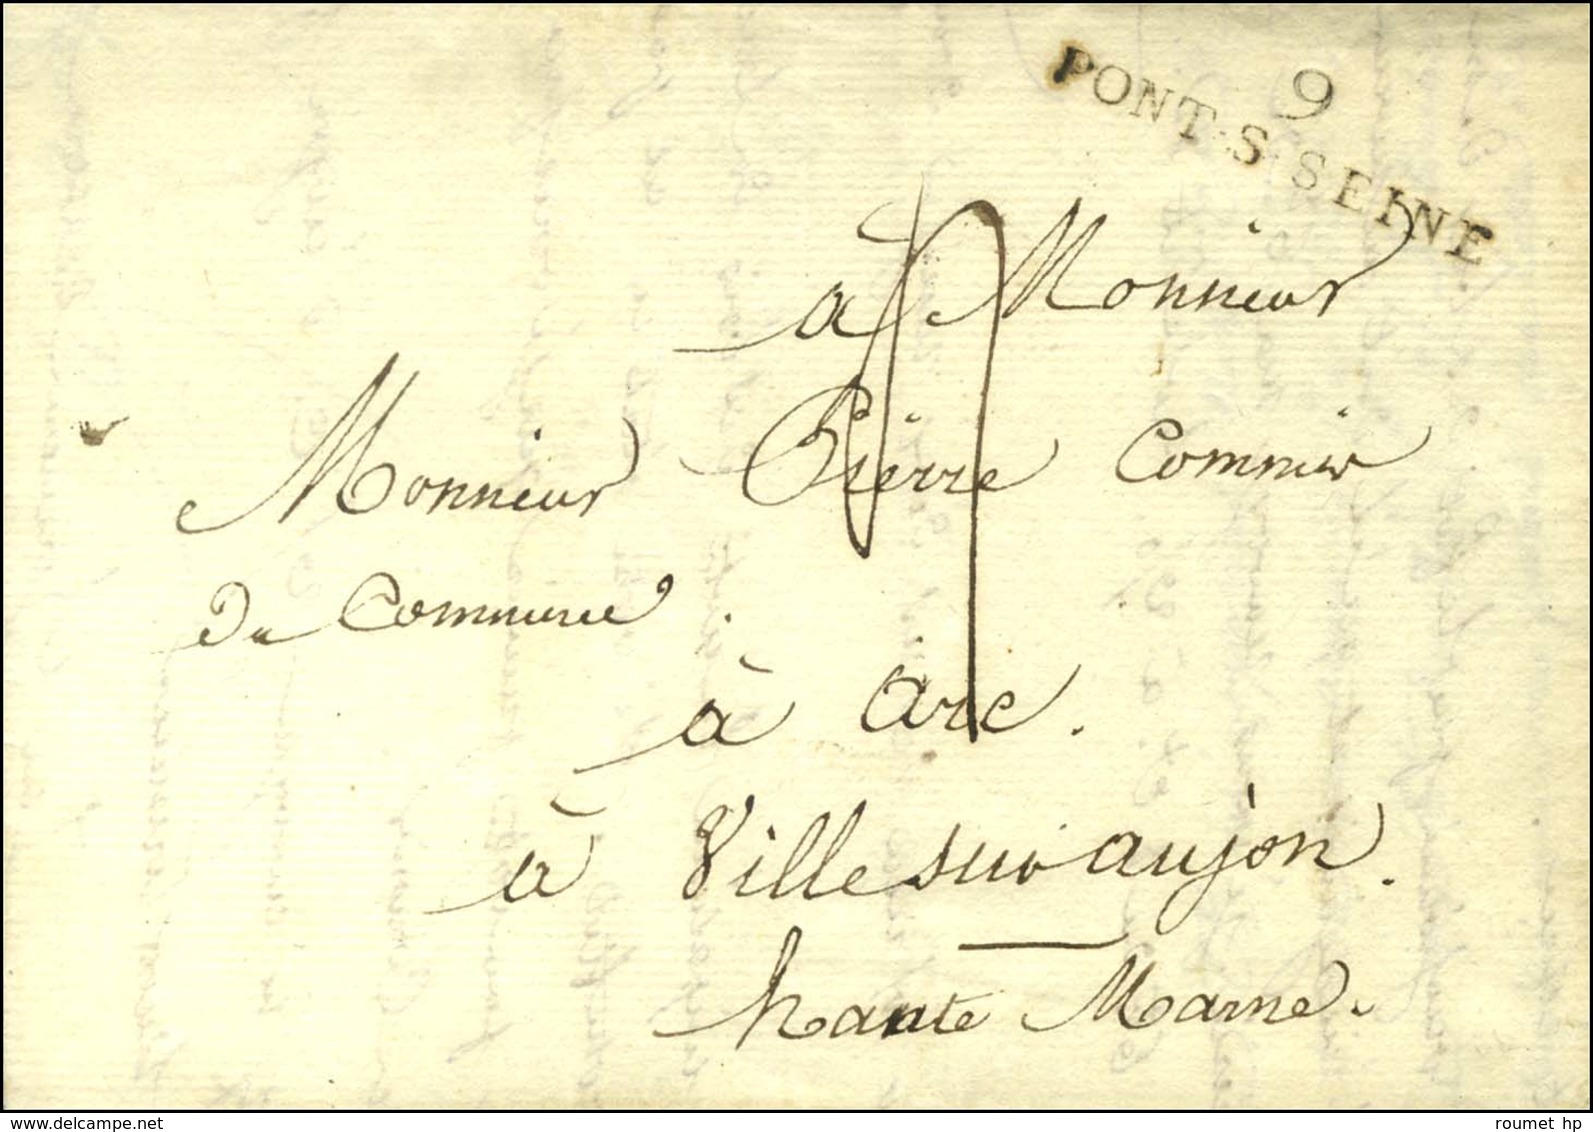 9
PONT·S·SEINE
à Monsieur
Monsieur Pierre Commis
du Commerce.
à arc.
à Ville sur aujon.
haute Marne.
www.delcampe.net
roumet hp